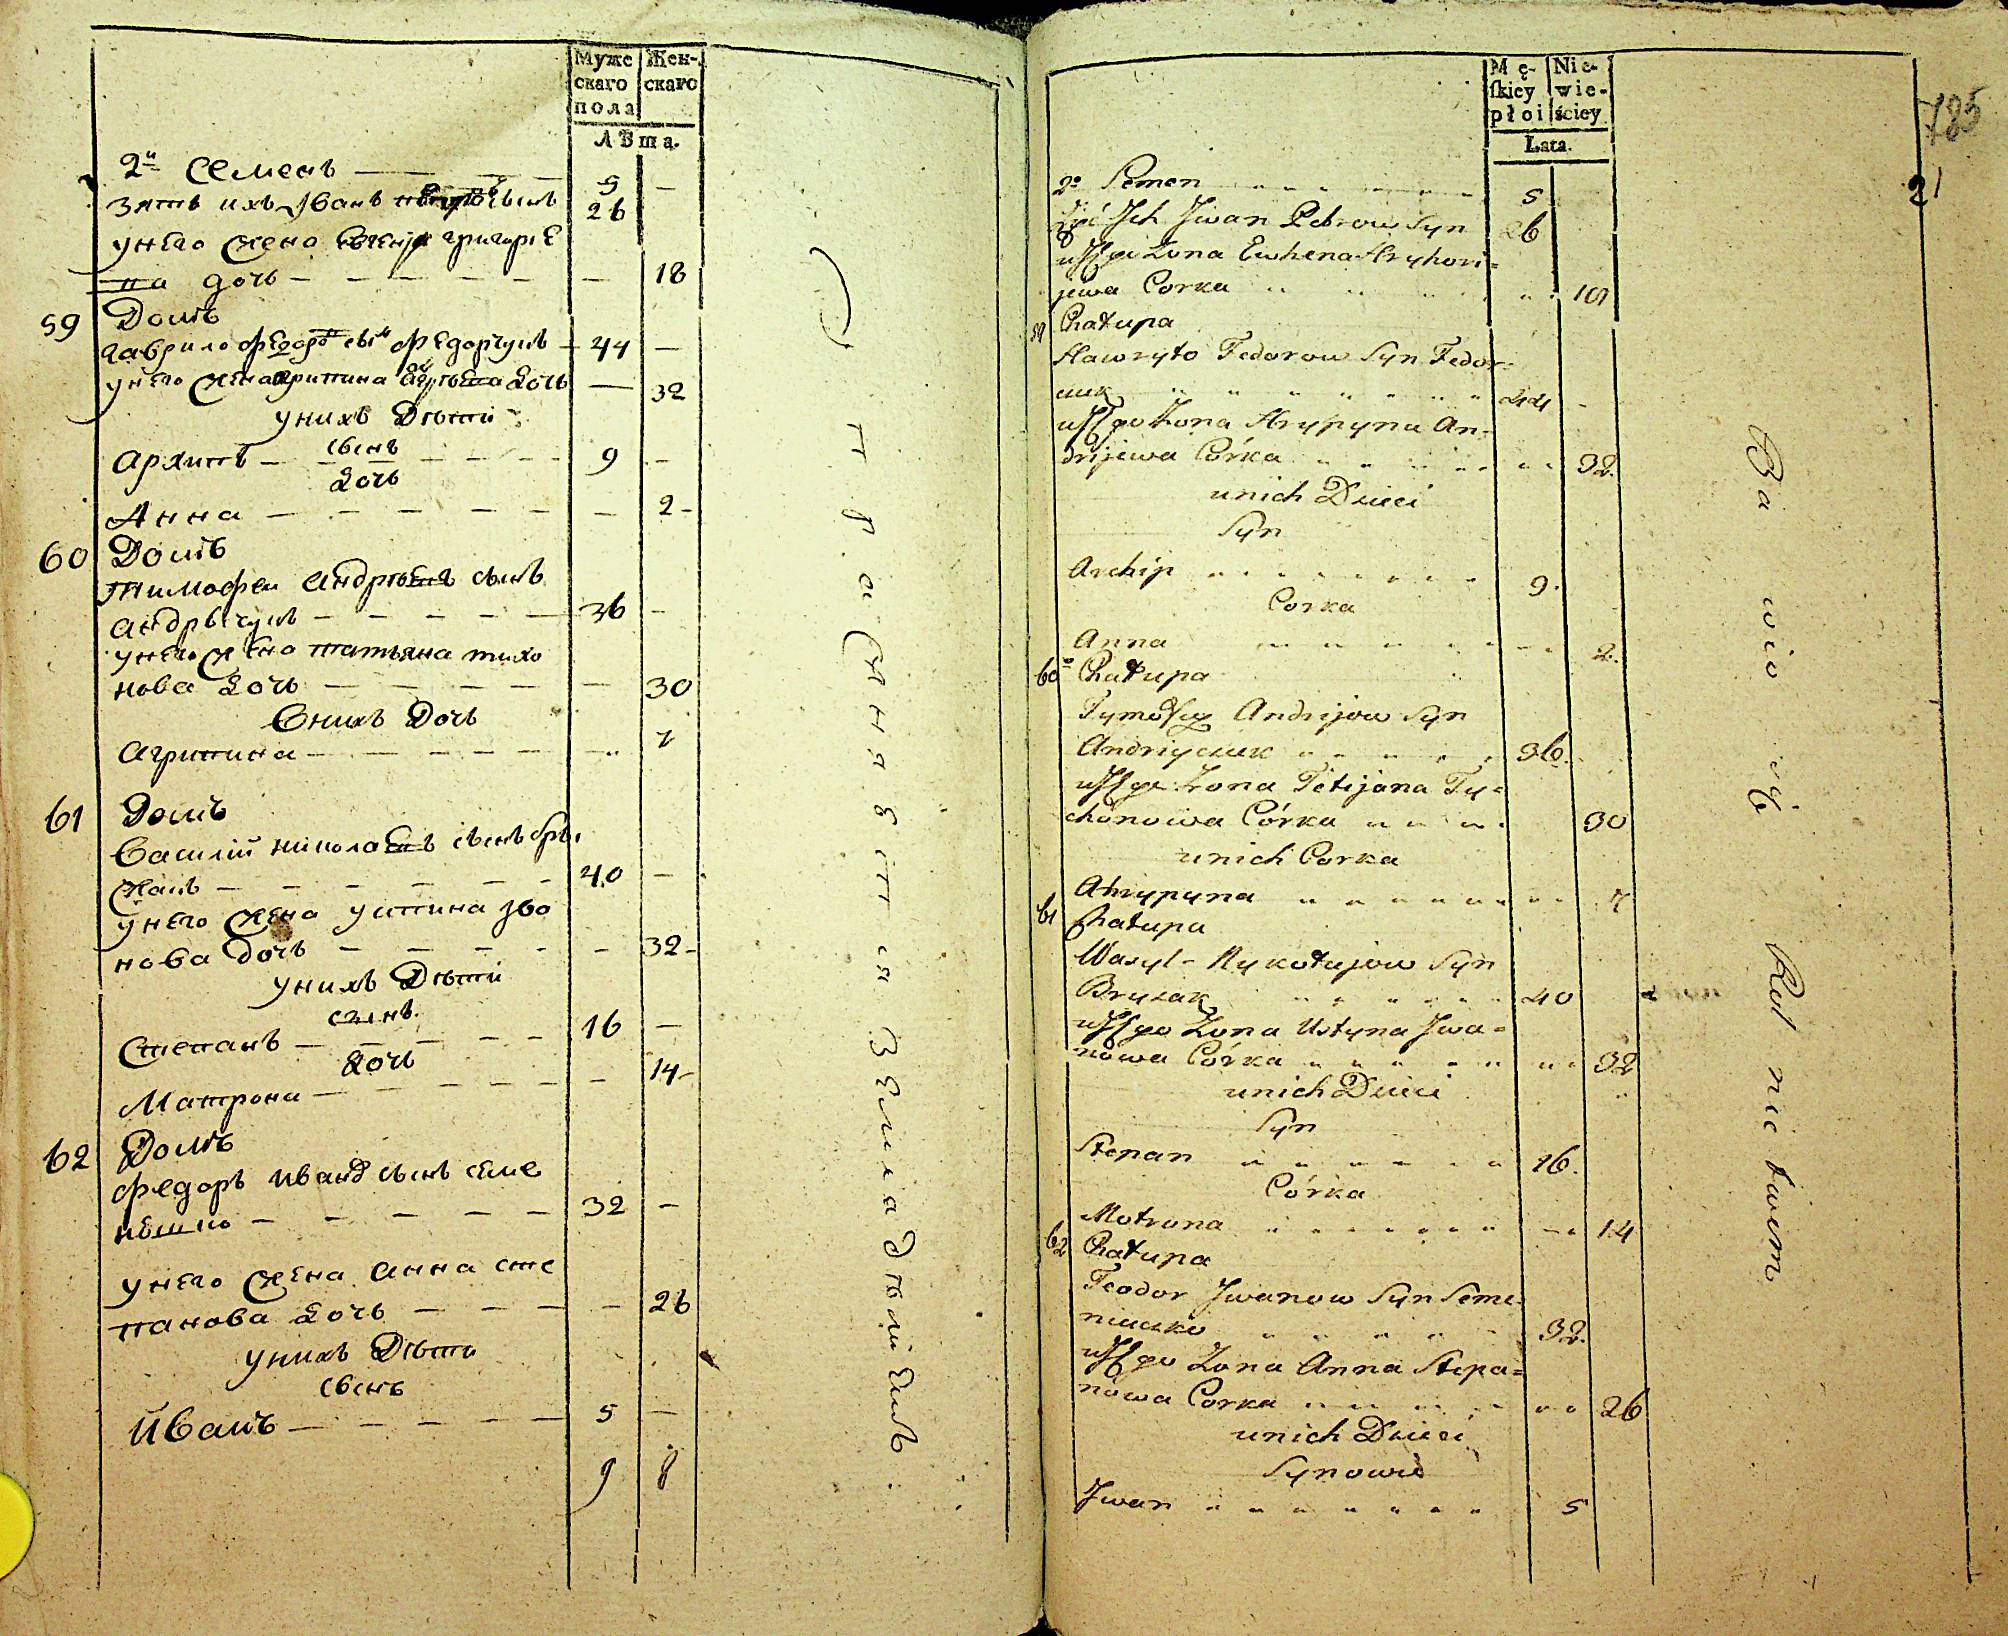 Муже Жен-
скаго скаго
пола
лѣта.
2й Семенъ — — — 5 —
зять ихъ Иванъ сынъ 26
унего жена Евгенія григорїе
на дочь — — — — — — 18
59 Домъ
Гаврило Федоровъ сынъ Федорчукъ — 44 —
унего жена дочь — 32
унихъ Дѣти
сынъ
Архипъ — — — — — 9 —
дочь
Анна — — — — — — — 2 —
60 Домъ
Тимофеи андрѣевъ сынъ
андрѣйчукъ — — — — — 36 —
унего жена татьяна тихо
нова дочь — — — — — — 30
Внихъ Дочь
агрипина — — — — — 7
61 Домъ
Василій николаевъ сынъ бры
жакъ — — — — — — 40 —
унего жена устина Іво
нова дочь — — — — — 32 —
унихъ Дѣти
сынъ
Степанъ — — — — — 16 —
дочь
Матрона — — — — — — 14 —
62 Домъ
Федоръ Иванов сынъ семе
нешко — — — — — 32 —
унего жена анна сте
панова дочь — — — — 26
унихъ Дѣти
сынъ
Иванъ — — — — — 5 —
9 8
упражняется земледѣліемъ
Mę- Nie-
ſkiey wie-
płci ściey
Lata.
785
21
2o Semen 5
Zięć Ich Jwan Petrow Syn 26
Żona Ewhena Hryhori=
jewa Corka 18
59 Chałupa
Hawryło Fedorow Syn Fedor=
czuk 44 -
Żona Hrypyna An=
drijewa Córka 32.
unich Dzieci
Syn
Archip 9.
Corka
Anna 2.
60 Chałupa
Tymofiey Andrijow Syn
Andriyczuk 36.
Żona Tetijana Ty=
chonowa Córka 30
unich Corka
Ahrypyna 7
61 Chałupa
Wasyl - Nykołajow Syn
Bryżak 40
Żona Ustyna Jwa=
nowa Córka 32
unich Dzieci
Syn
Stepan 16.
Córka
Motruna 14
62 Chałupa
Teodor Jwanow Syn Seme
niuczko 32.
Żona Anna Stepa=
nowa Corka 26
unich Dzieci
Synowie
Jwan 5
Bawią się Rolnictwem